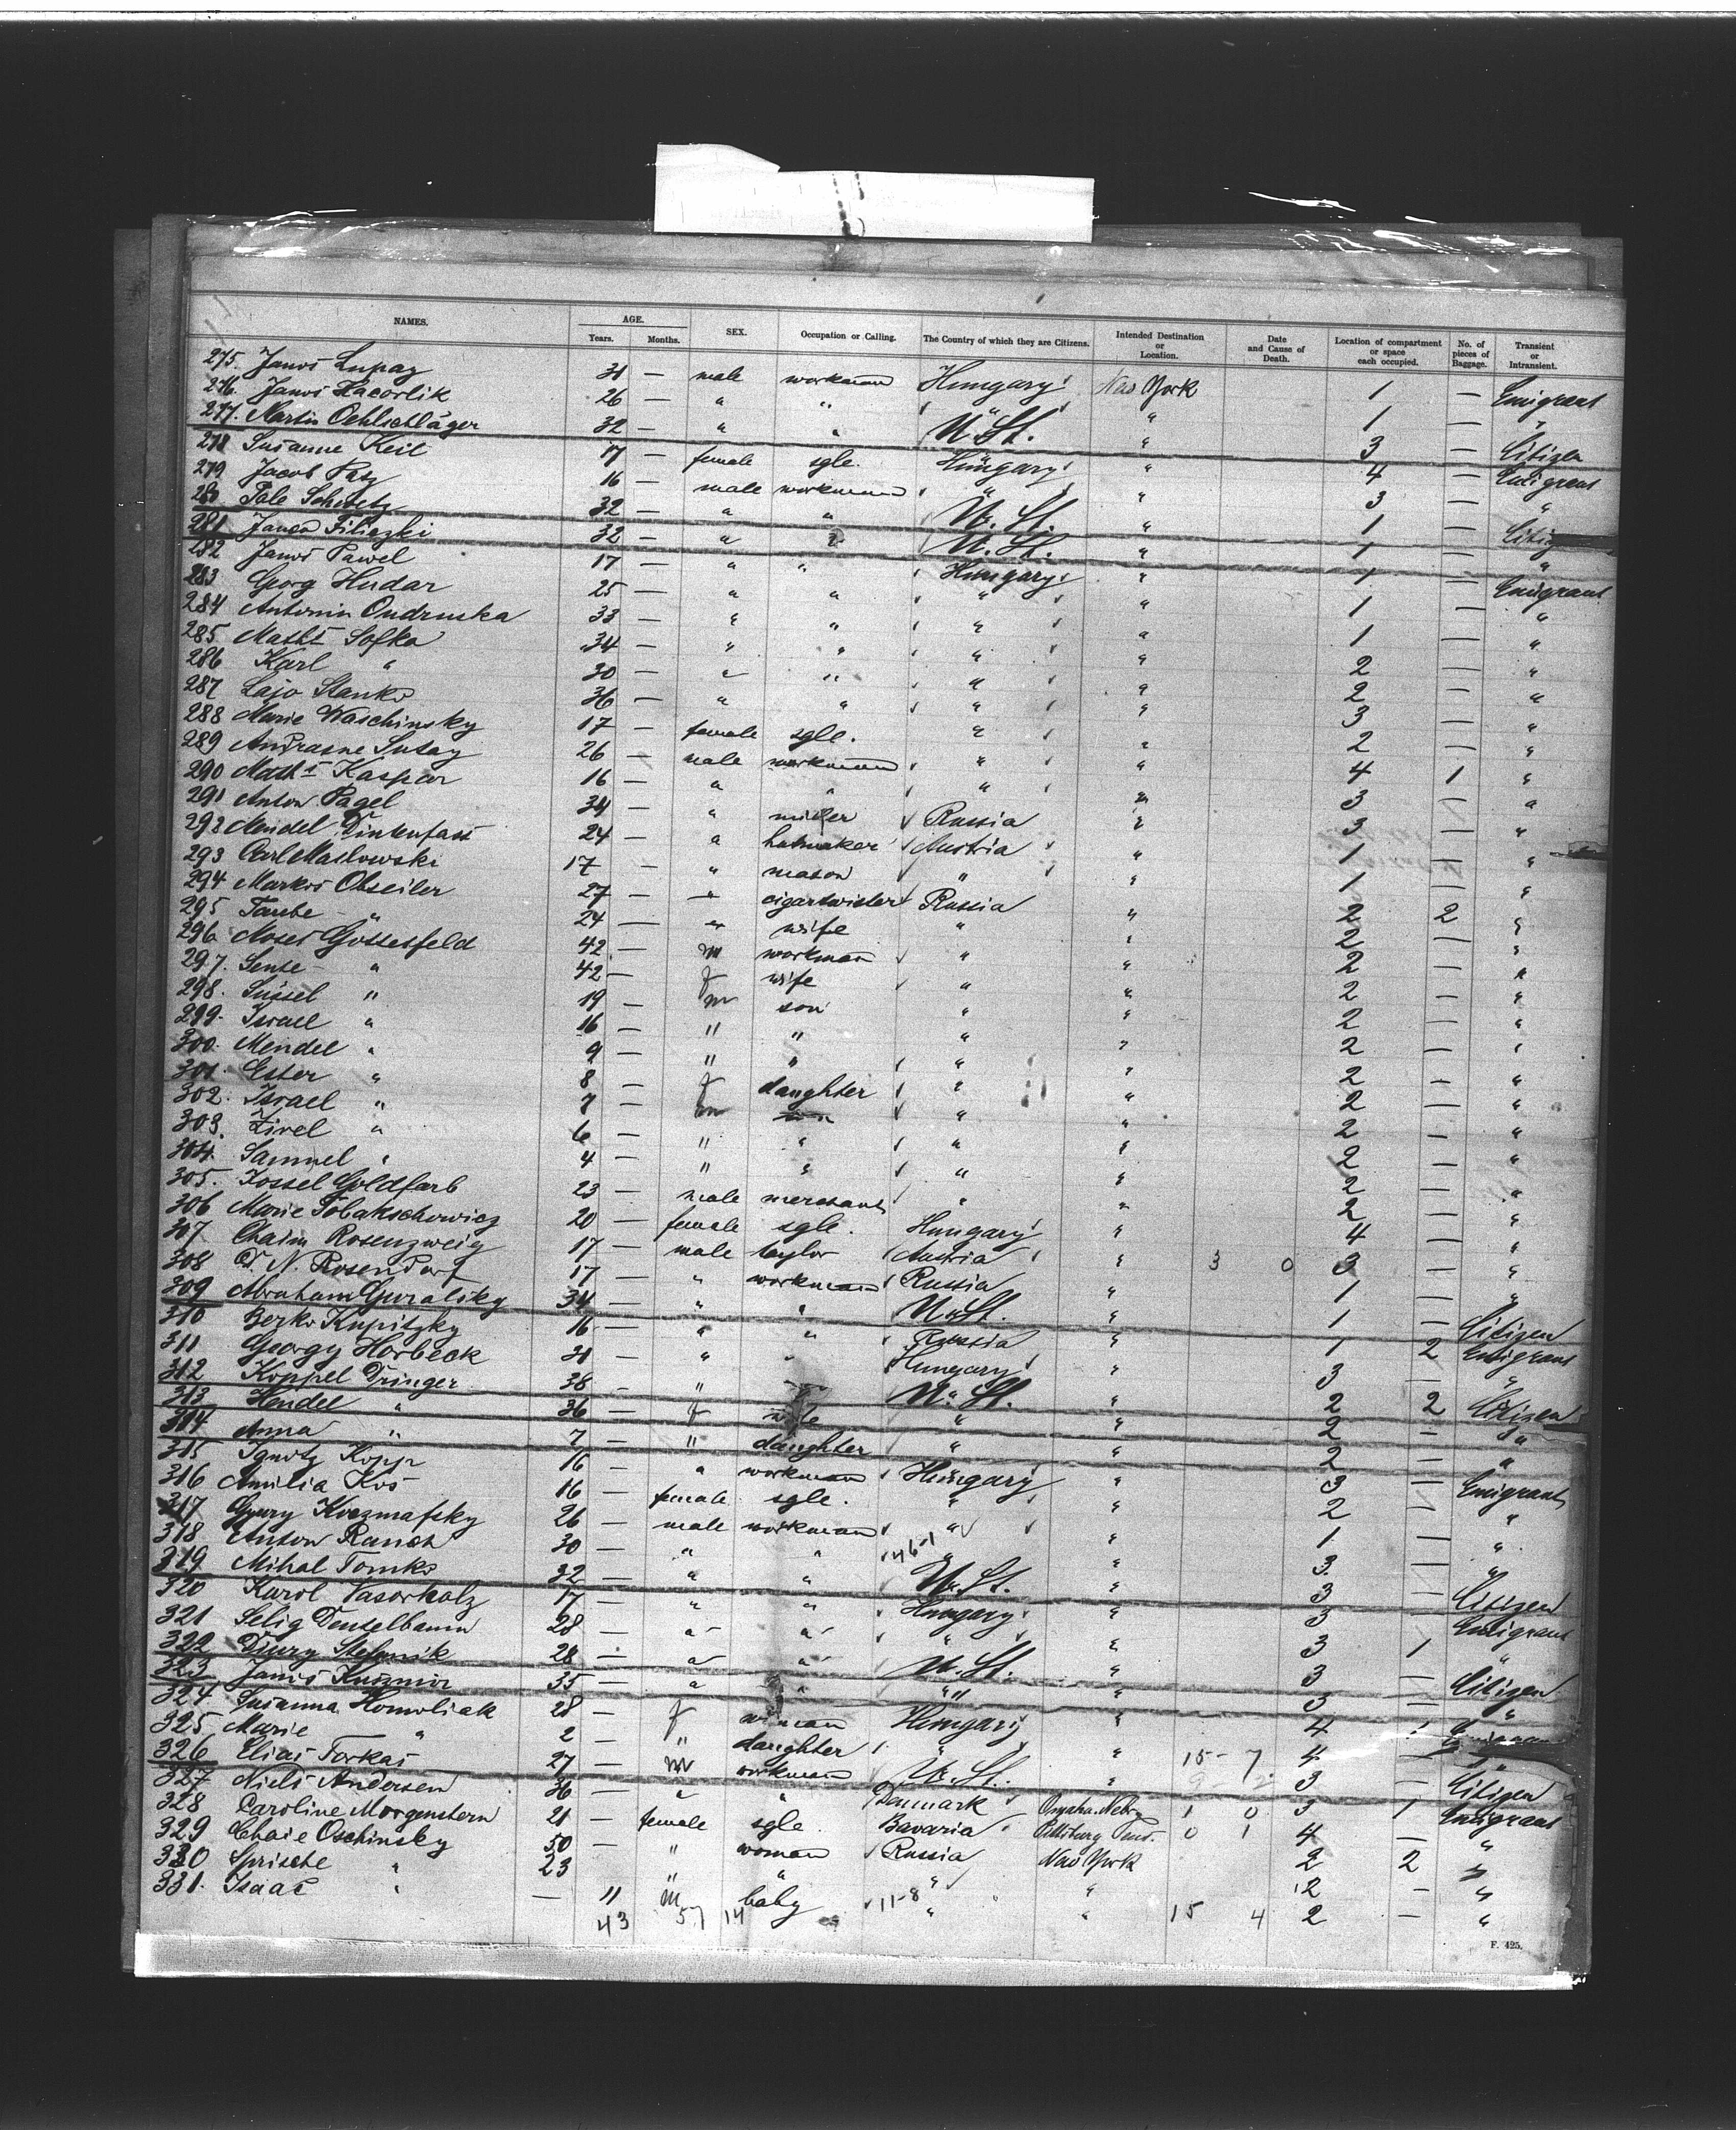 NAMES. AGE. Years. Months. SEX. Occupation or Calling. The Country of which they are Citizens. Intended Destination or Location. Date and Cause of Death. Location of compartment or space each occupied. No. of pieces of Baggage. Transient or Intransient.
275. Janos Lupay 31 — male workman Hungary New York 1 — Emigrant
276. Janos Hacorlik 26 — " " " " 1 — "
277. Martin Oehlschläger 32 — " " U. St. " 3 — Citizen
278 Susanne Keil 17 — female sgle. Hungary " 4 — Emigrant
279 Jacob Paty 16 — male workman " " 3 — "
280 Pale Schwetz 32 — " " U. St. " 1 — Citiz
281 Janos Filiczki 32 — " " U. St. " 1 — "
282 Janos Pawel 17 — " " Hungary " 1 — Emigrant
283 Georg Hudar 25 — " " " " 1 — "
284 Antonin Ondruska 33 — " " " " 1 — "
285 Maths Sofka 34 — " " " " 2 — "
286 Karl " 30 — " " " " 2 — "
287 Lajo Stanko 36 — " " " " 3 — "
288 Marie Waschinsky 17 — female sgle. " " 2 — "
289 Andrasne Sutay 26 — male workman " " 4 1 "
290 Maths Kaspar 16 — " " " " 3 — "
291 Anton Pagel 34 — " miller Russia " 3 — "
292 Mendel Tintenfass 24 — " hatmaker Austria " 1 — "
293 Carl Maslowski 17 — " mason " " 1 — "
294 Markos Obseiler 27 — " cigartwister Russia " 2 2 "
295 Taube " 24 — " wife " " 2 — "
296 Moses Gottesfeld 42 — m workman " " 2 — "
297. Sente " 42 — f wife " " 2 — "
298. Süssel " 19 — m son " " 2 — "
299. Israel " 16 — " " " " 2 — "
300. Mendel " 9 — " " " " 2 — "
301. Ester " 8 — f daughter " " 2 — "
302. Israel " 7 — m son " " 2 — "
303. Zirel " 6 — " " " " 2 — "
304. Samuel " 4 — " " " " 2 — "
305. Jossel Goldfarb 23 — male merchant " " 2 — "
306 Marie Tobakschowicz 20 — female sgle. Hungary " 4 — "
307 Chaim Rosenzweig 17 — male taylor Austria " 3 0 3 — "
308 D. N. Rosendorf 17 — " workman Russia " 1 — "
309 Abraham Guralsky 34 — " " U. St. " 1 — Citizen
310 Berko Kupitzky 16 — " " Russia " 1 2 Emigrant
311 Georgy Horbeck 31 — " " Hungary " 3 — "
312 Koppel Dringer 38 — " U. St. " 2 2 Citizen
313 Hendel " 36 — f wife " " 2 — "
314 Anna " 7 — " daughter " " 2 — "
315 Ignatz Kopp 16 — " workman Hungary " 3 — Emigrant
316 Amilia Kos 16 — female sgle. " " 2 — "
317 Gyury Koczmafsky 26 — male workman " " 1 — "
318 Anton Rausch 30 — " " 46-1 " " 3 — "
319 Mihal Tomko 32 — " " U. St. " 3 — Citizen
320 Karol Vasorkolz 17 — " " Hungary " 3 — Emigrant
321 Selig Deutelbaum 28 — " " " " 3 1 "
322 Djury Stefanik 28 — " " U. St. " 3 — Citizen
323 Janos Kusznir 35 — " " " " 3 — "
324 Susanna Homoliak 28 — f woman Hungary " 4
325 Marie " 2 — " daughter " " 15-7 4 — "
326 Elias Torkas 27 — m workman U. St. " 3 — Citizen
327 Niels Andersen 36 — " " Denmark Omaha. Nebr. 1 0 3 1 Emigrant
328 Caroline Morgenstern 21 — female sgle. Bavaria Pittsburg 0 1 4 — "
329 Chaie Oschinsky 50 — " woman Russia New York 2 2 "
330 Sprische " 23 " " " 2 — "
331. Isaac " — 11 m baby 11-8 " " 15 4 2 — "
43 57 14
F. 425.